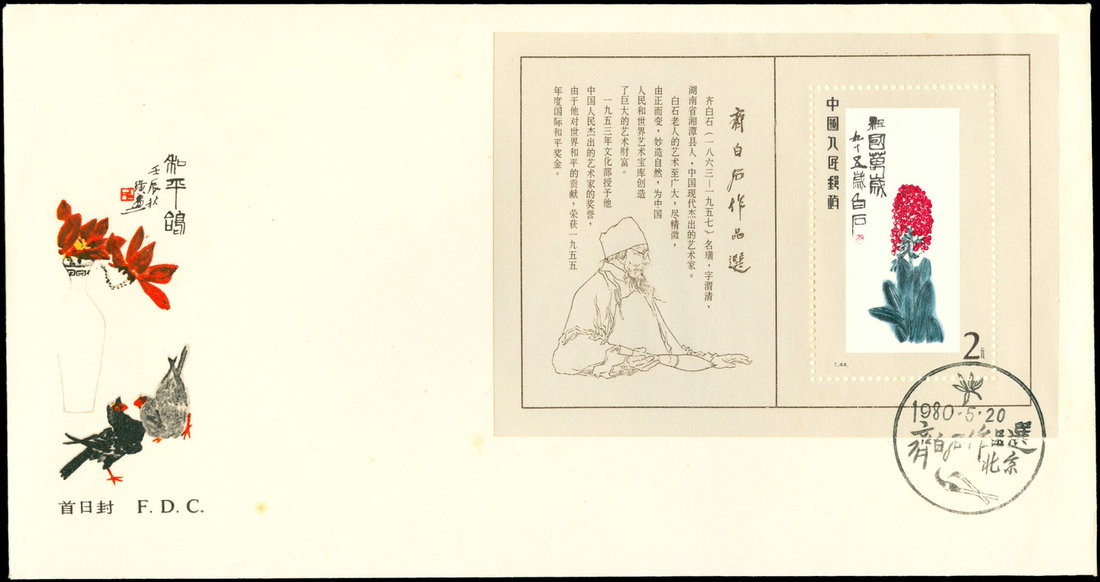 和平鴿
壬辰秋
璜畫
首日封 F. D. C.
齊白石作品選
齐白石(一八六三—一九五七)名璜,字渭清,
湖南省湘潭县人,中国现代杰出的艺术家。
白石老人的艺术至广大,尽精微,
由正而变,妙造自然,为中国
人民和世界艺术宝库创造
了巨大的艺术财富。
一九五三年文化部授予他
中国人民杰出的艺术家的奖誉,
由于他对世界和平的贡献,荣获一九五五
年度国际和平奖金。
中國人民郵政
祖國萬歲
九十五歲白石
T.44.
2元
1980·5·20
齊白石作品選
北京